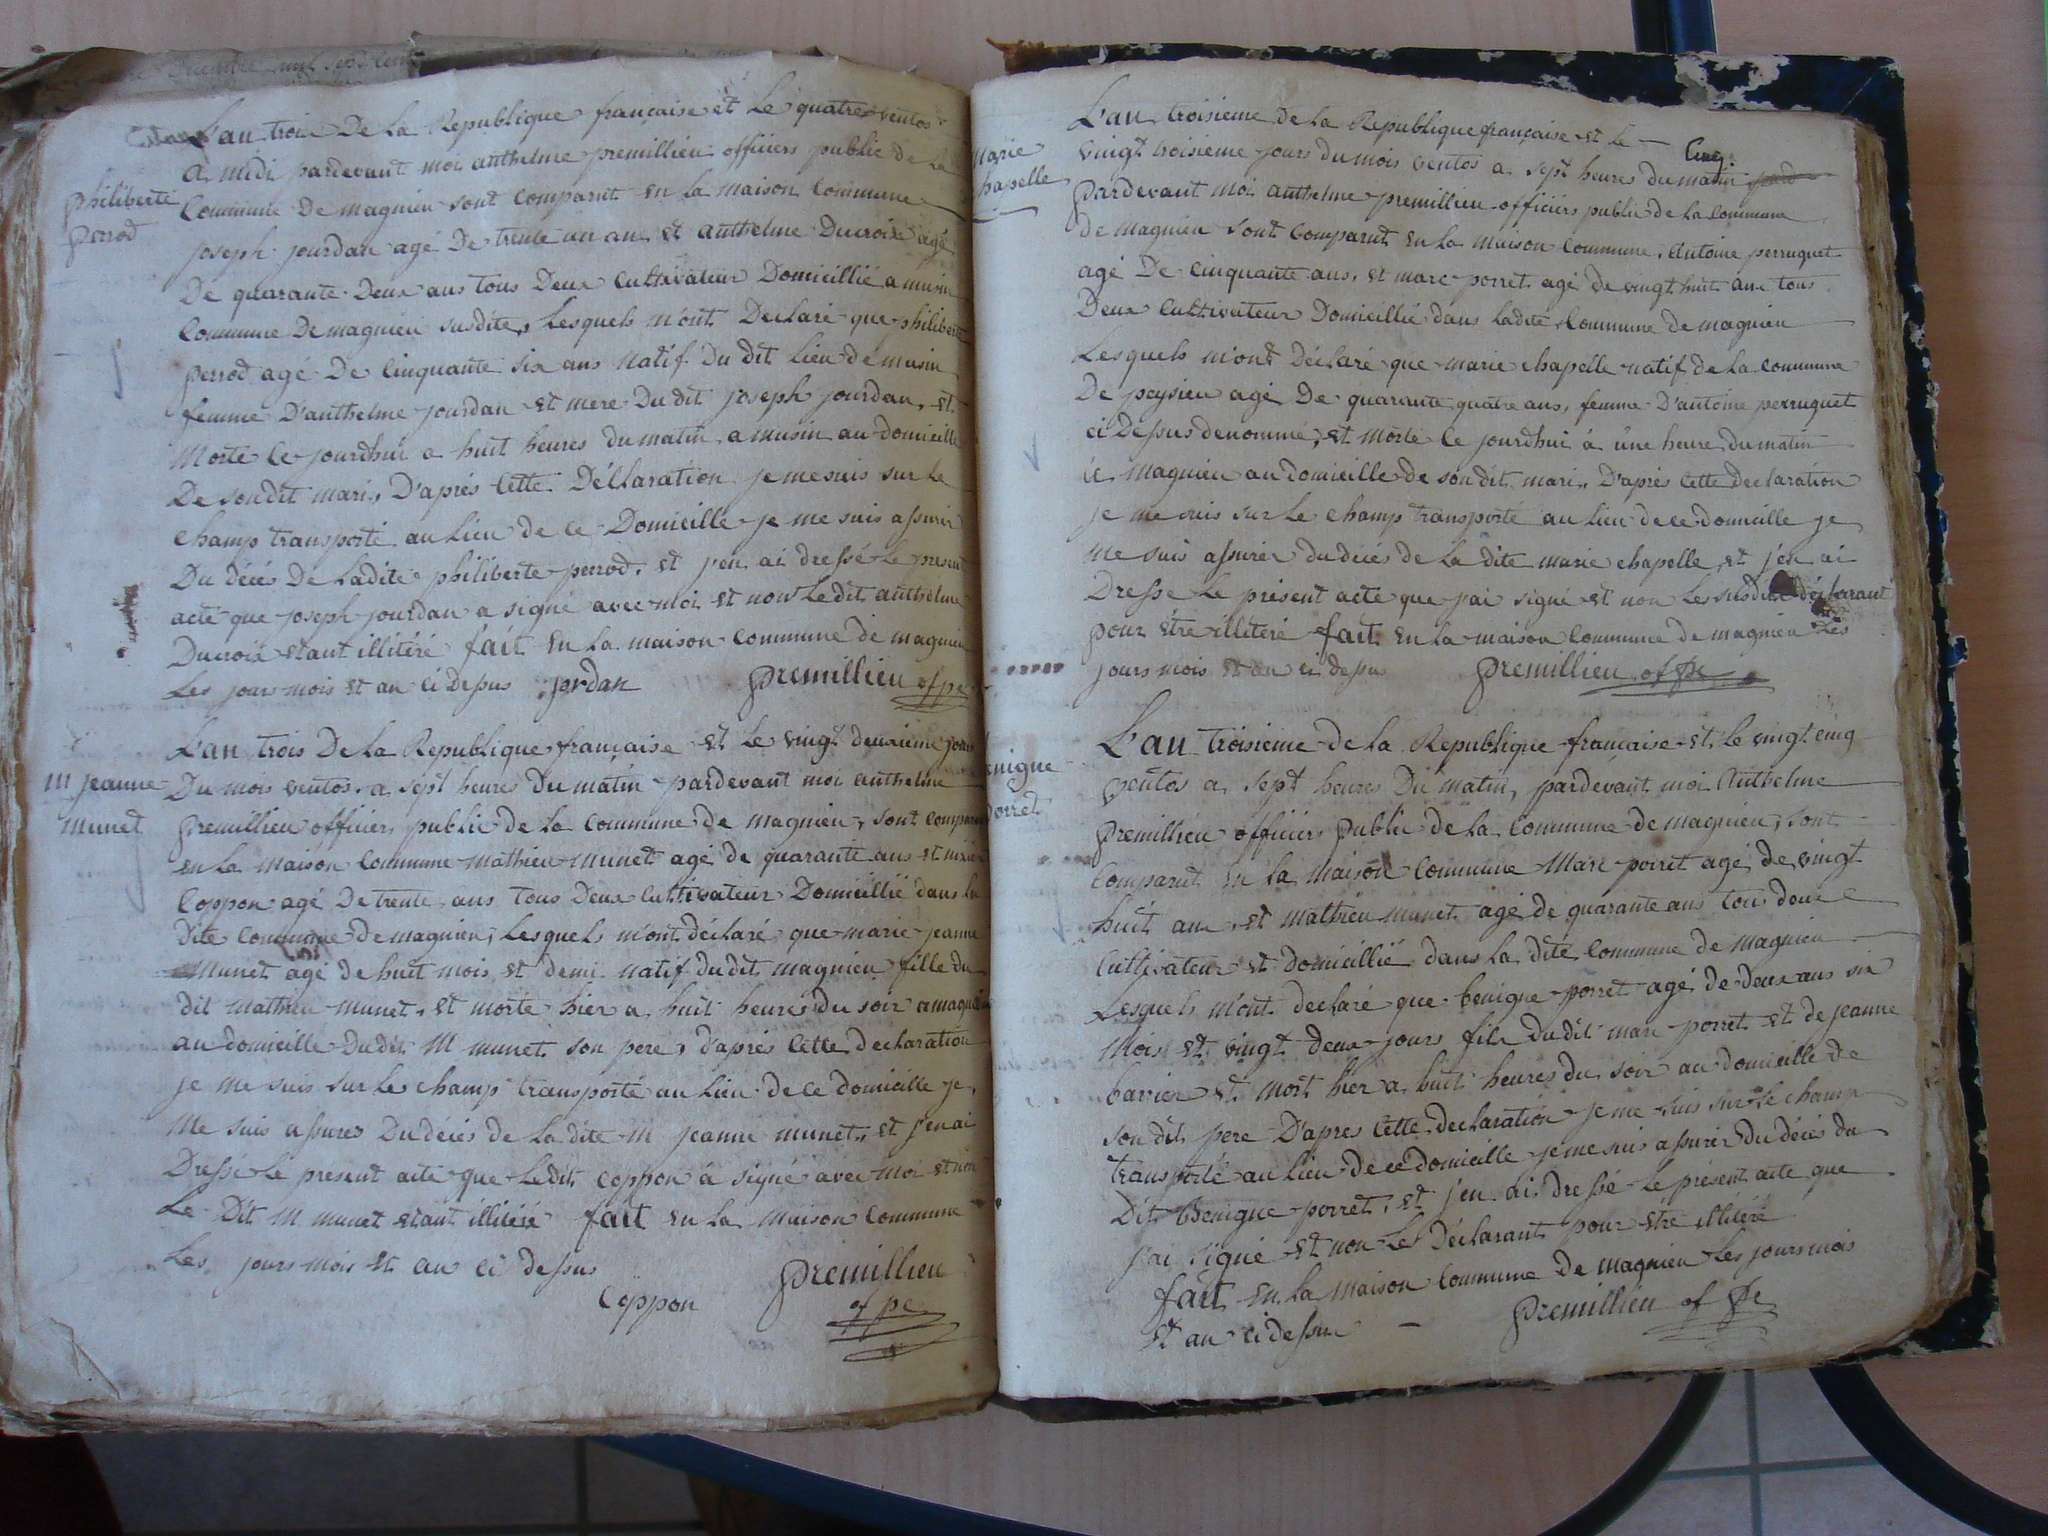 L'an trois De La Republique française et Le quatre ventos
a midi pardevant moi anthelme premillieu officiers public de La
philiberte
perrod
Commune De magnieu sont comparut en La maison Commune
joseph jourdan agé De trente un ans et anthelme Ducroix agé
De quarante Deux ans tous Deux Cultivateur Domicillié a musin
Commune De magnieu susdite, Lesquels m'ont Declaré que philiberte
perrod agé De Cinquante six ans natif Du dit Lieu de musin
femme D'anthelme jourdan et mere Du dit joseph jourdan, et
Morte Ce jourdhui a huit heures du matin a musin au domicille
De sondit mari, D'aprés Cette Déclaration je me suis sur Le
champ transporté au Lieu de ce Domicille je me suis assurér
Du décés De Ladite philiberte perrod, et j'en ai dressé Le present
acte que joseph jourdan a signé avec moi et non Ledit anthelme
Ducroix etant illitéré fait en La maison Commune de magnieu
Les jours mois et an ci Dessus jordan premillieu of pc
L'an trois De La Republique française et Le vingt deuxieme jours
M jeanne
munet
Du mois ventos a sept heures Du matin pardevant moi anthelme
premillieu officiers public de La Commune de magnieu, sont comparut
en La maison Commune mathieu munet agé de quarante ans et
Coppon agé De trente ans tous Deux Cultivateur Domicillié dans La
Dite Commune de magnieu, Lesquels m'ont déclaré que marie jeanne
munet agé de huit mois et demi natif du dit magnieu fille du
dit mathieu munet, et morte hier a huit heures du soir a magnieu
au domicille Du dit M munet son pere, d'aprés Cette declaration
je me suis sur Le champ transporté au Lieu de ce domicille je
Me suis assurer Du decés de La dite M jeanne munet, et j'en ai
Dressé Le present acte que Ledit Coppon à signé avec moi et non
Le Dit M munet etant illitéré fait en La maison Commune
Les jours mois et an ci dessus
Coppon premillieu
of pc
L'an troisieme de La Republique française et Le
Marie
chapelle
vingt troisieme jours du mois ventos a sept heures du matin
pardevant Moi anthelme premillieu officiers public de La Commune
de magnieu sont Comparut en La maison Commune, Antoine perruquet
agé De Cinquante ans, et marc porret agé de vingt huit ans tous
Deux Cultivateur Domicillié dans Ladite Commune de magnieu
Lesquels m'ont Déclaré que marie chapelle natif de La commune
De peysieu agé De quarante quatre ans, femme D'antoine perruquet
ci Dessus denommé, et morte Ce jourdhui à une heure Du matin
a magnieu au domicille de son dit mari, D'aprés Cette declaration
je me suis sur Le champ transporté au Lieu de ce domicille je
Me suis assurér du décés de La dite marie chapelle, et j'en ai
Dresse Le présent acte que j'ai signé et non Les susdit déclarant
pour être illiteré fait en La maison Commune de magnieu Les
jours mois et an ci dessus premillieu of pc
L'an troisieme de La Republique française et Le vingt cinq
benigne
porret
ventos a sept heures Du matin, pardevant moi Anthelme
premillieu officiers public de La Commune de magnieu, sont
Comparut en La maison Commune Marc porret agé de vingt
huit ans et mathieu munet agé de quarante ans tous deux
Cultivateur et domicillié dans La dite Commune de magnieu
Lesquels m'ont declaré que benigne porret agé de deux ans six
Mois et vingt deux jours fils du dit marc porret et de jeanne
bavier et mort hier a huit heures du soir au domicille de
son dit pere D'aprés Cette declaration je me suis sur Le champ
transporté au Lieu de ce domicille je me suis assurér Du décés du
Dit Benigne porret, et j'en ai dressé Le présent acte que
j'ai signé et non Le Déclarant pour être illiteré
fait en La maison Commune De magnieu Les jours mois
et an ci dessus premillieu of pc